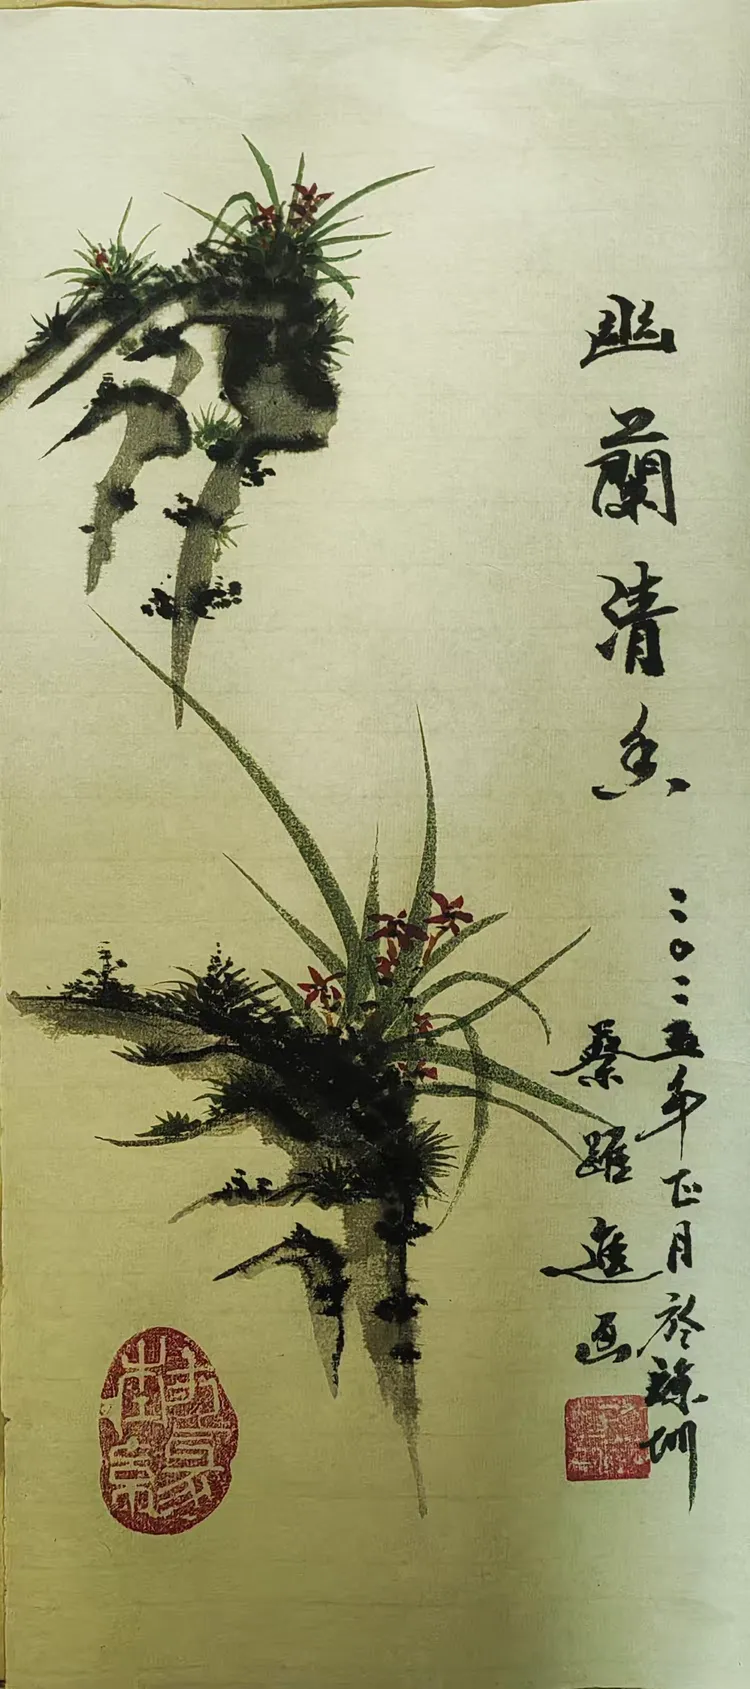 幽蘭清香
二〇二五年正月於深圳
蔡躍進画